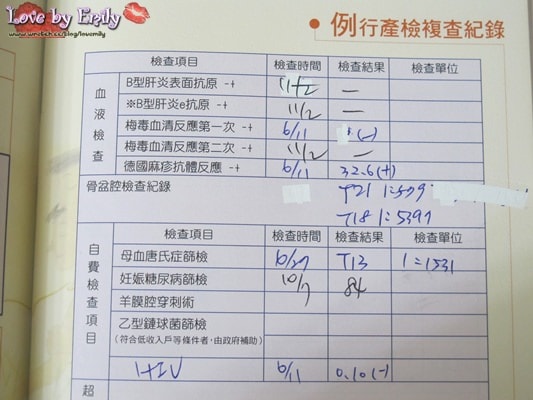 Love by Emily
www.wretch.cc/blog/lovemily
例行產檢複查紀錄
檢查項目 檢查時間 檢查結果 檢查單位
血液檢查
B型肝炎表面抗原 -+ 11/2 —
※B型肝炎e抗原 -+ 11/2 —
梅毒血清反應第一次 -+ 6/11 (-)
梅毒血清反應第二次 -+ 11/2 —
德國麻疹抗體反應 -+ 6/11 32.6(+)
骨盆腔檢查紀錄 T21 1:579
T18 1:5397
自費檢查項目
檢查項目 檢查時間 檢查結果 檢查單位
母血唐氏症篩檢 T13 1:1531
妊娠糖尿病篩檢 10/7 84
羊膜腔穿刺術
乙型鏈球菌篩檢
(符合低收入戶等條件者,由政府補助)
HIV 6/11 0.10(-)
超